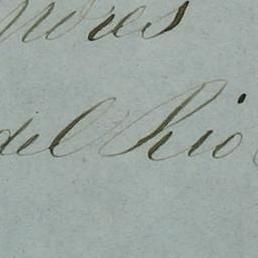 ndres
del Rio